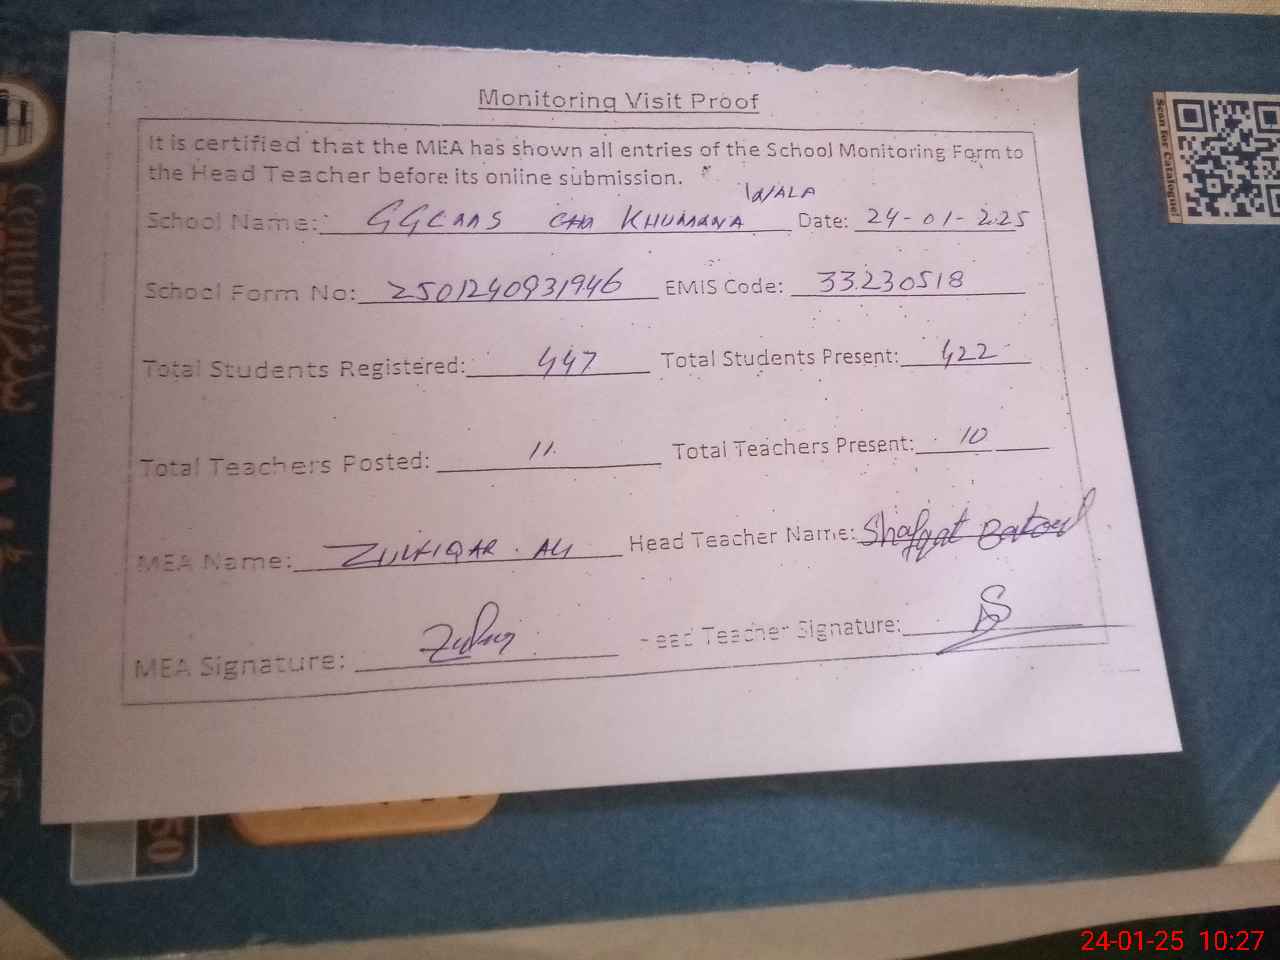 Monitoring Visit Proof
It is certified that the MEA has shown all entries of the School Monitoring Form to
the Head Teacher before its online submission.
WALA
School Name: GGCMMS CHA KHUMANA Date: 24-01-2025
School Form No: 2501240931946 EMIS Code: 33230518
Total Students Registered: 447 Total Students Present: 422
Total Teachers Posted: 11 Total Teachers Present: 10
MEA Name: ZULFIQAR ALI Head Teacher Name: Shafqat Batool
MEA Signature: Head Teacher Signature:
Scan for Catalogue
Century
50
24-01-25 10:27